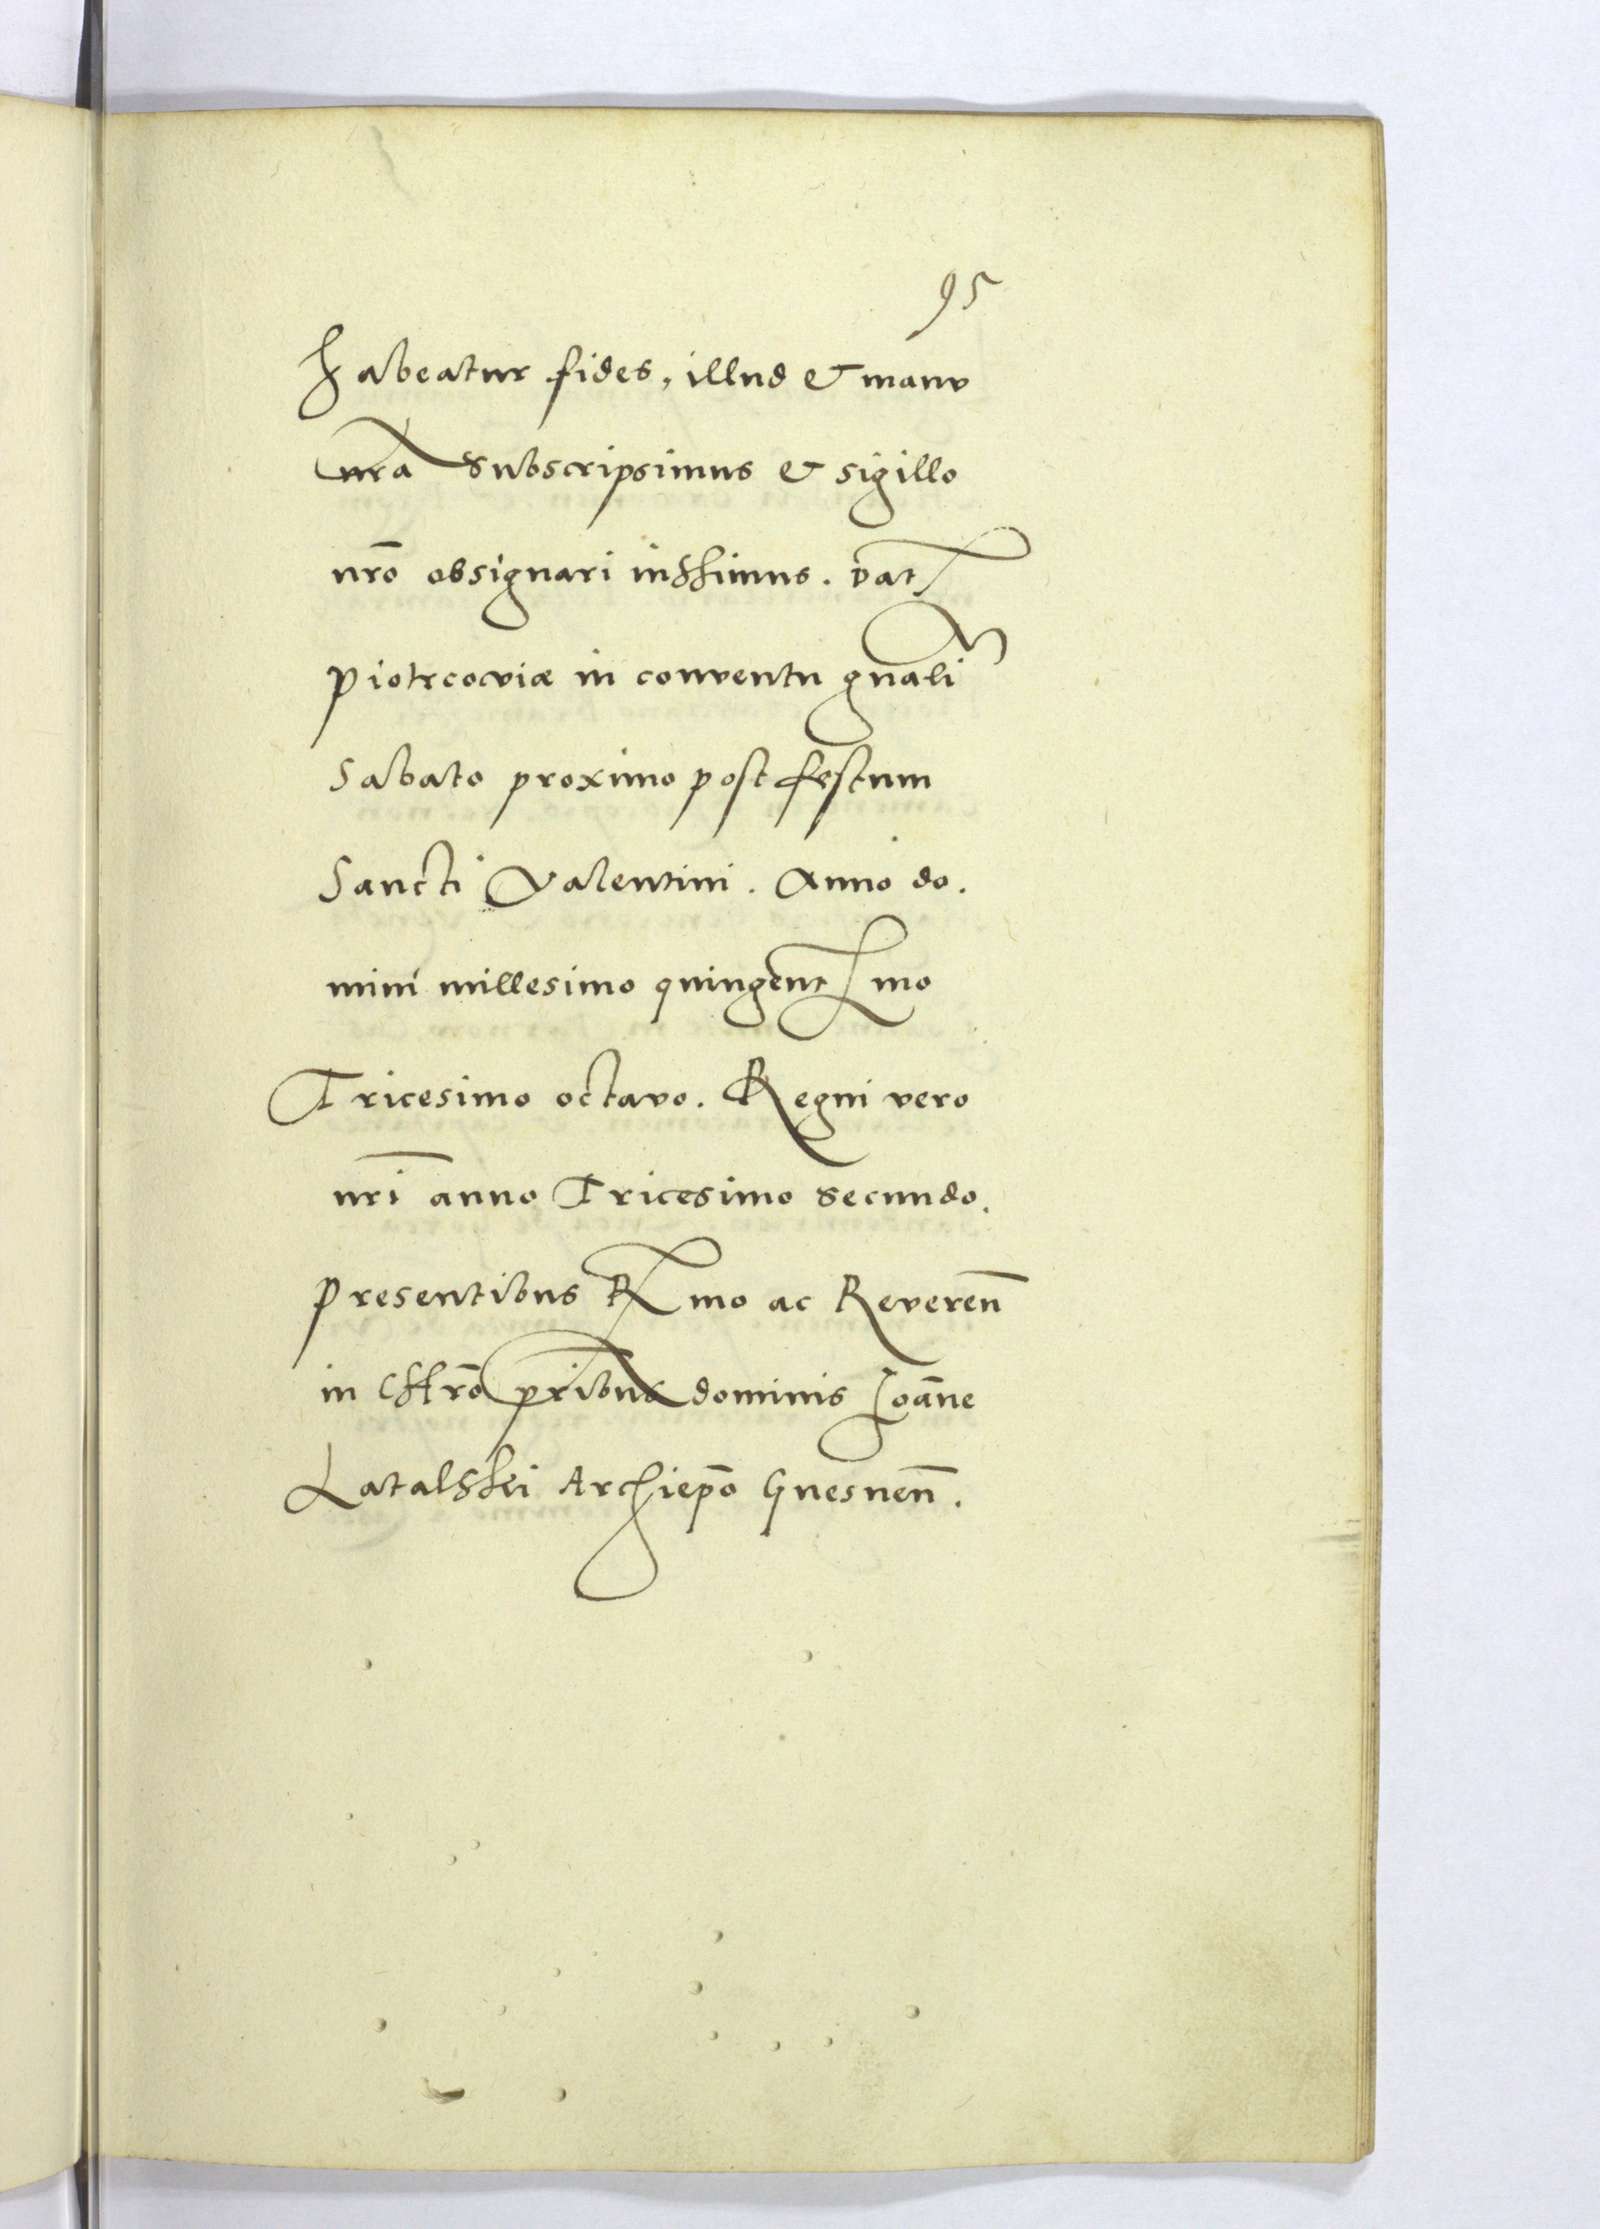 95
habeatur fides, illud & manu
nr̃a subscripsimus & sigillo
nr̃o obsignari iussimus. Dat
Piotrcoviæ in conventu gnãli
Sabato proximo post festum
Sancti Valentini. Anno do.
mini millesimo quingent mo
Tricesimo octavo. Regni vero
nr̃i anno Tricesimo secundo.
Presentibus R mo ac Reveren̄
in Chr̃o pr̃ibus dominis Ioãne
Latalski Archiep̃o Gnesnen̄.